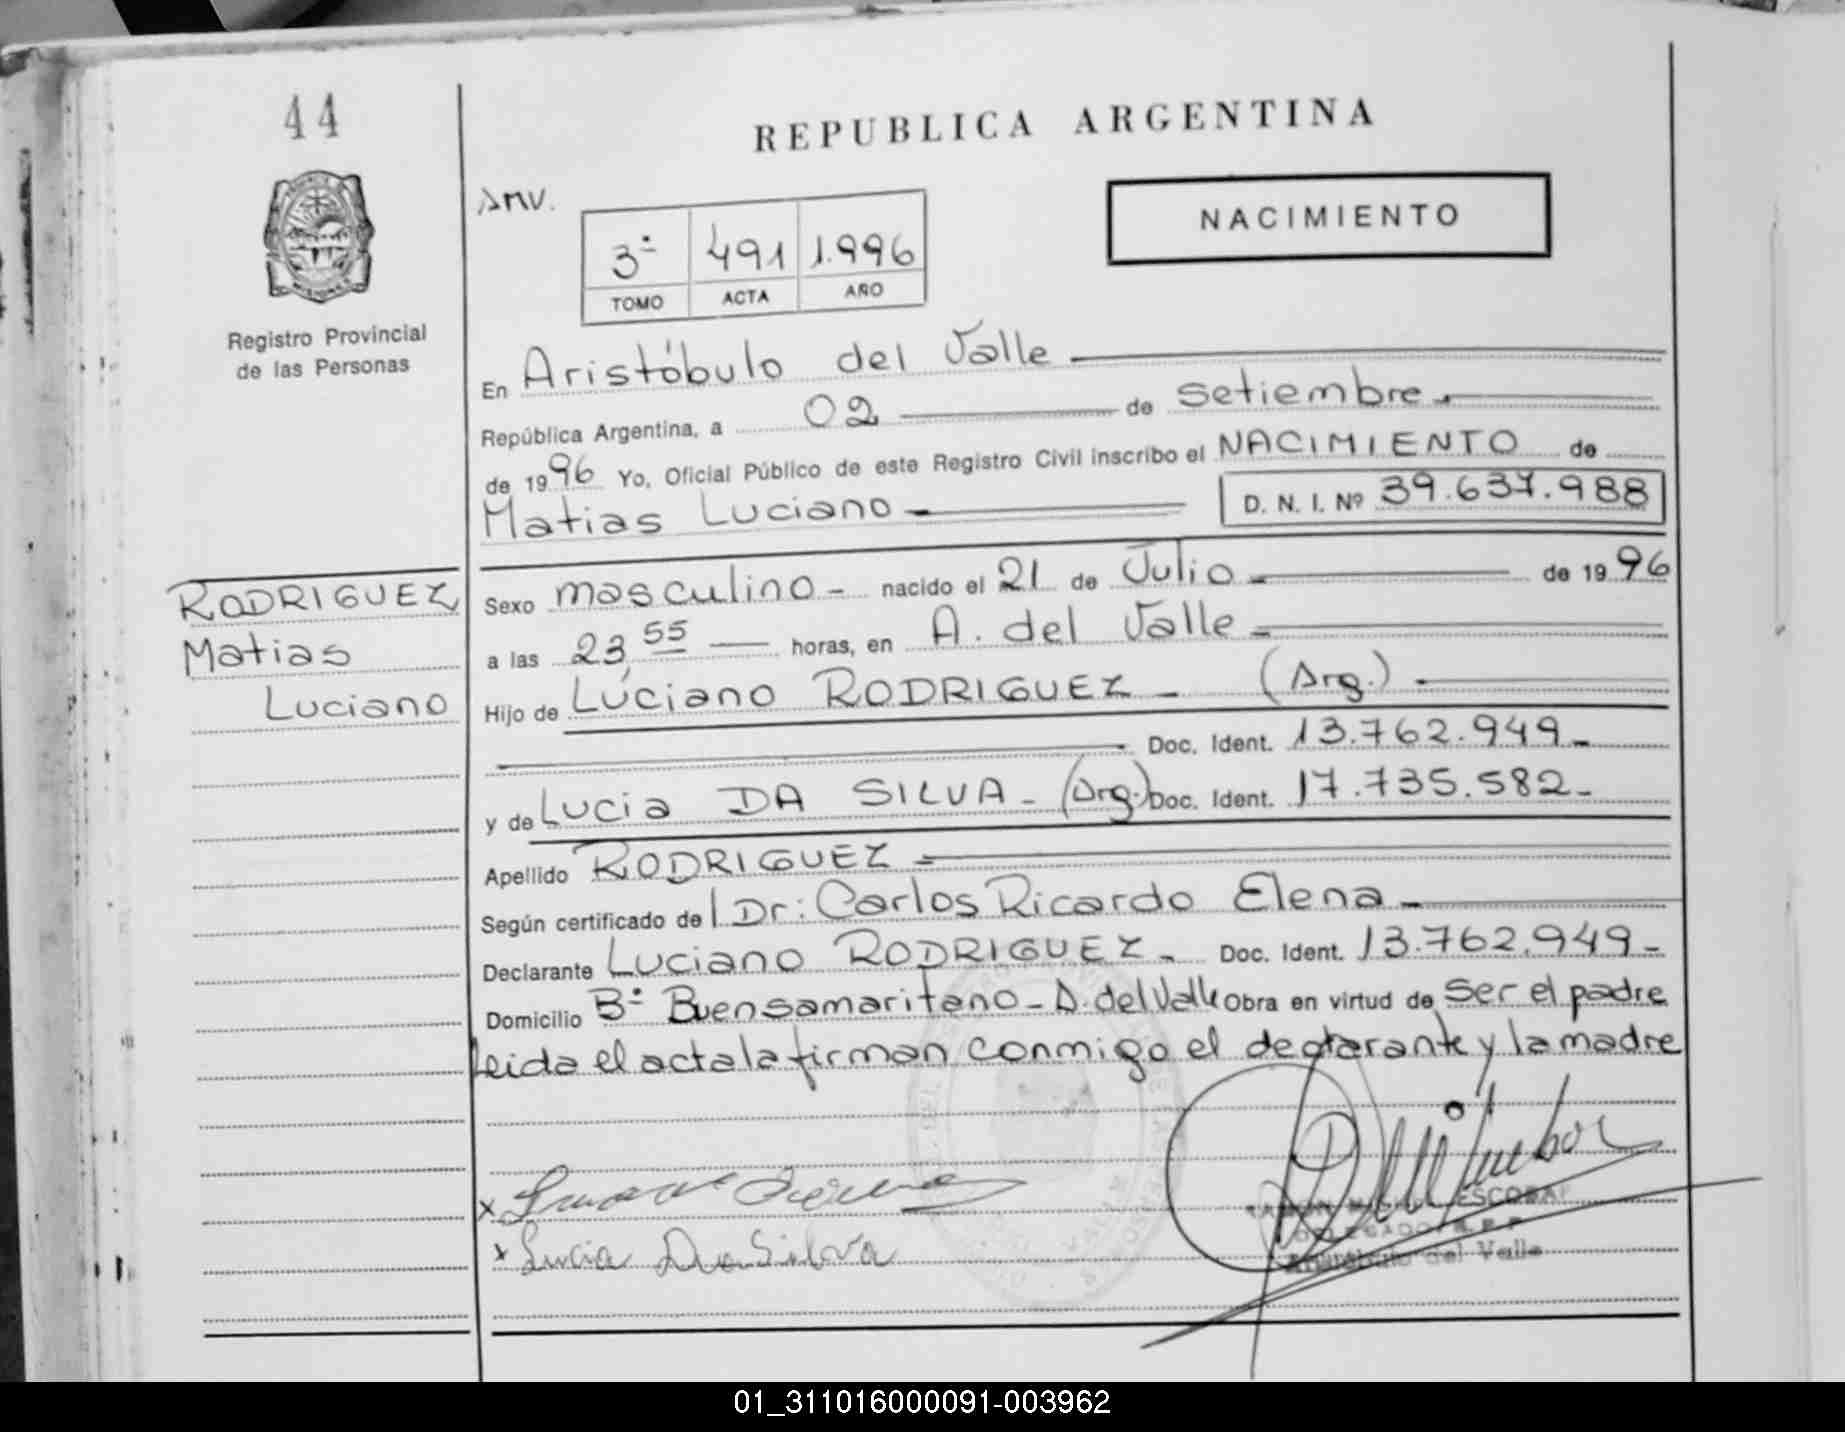 44
REPUBLICA ARGENTINA
AMV.
NACIMIENTO
3º 491 1.996
TOMO ACTA AÑO
MISIONES
Registro Provincial
de las Personas
En Aristóbulo del Valle
República Argentina, a 02 de setiembre
de 1996 Yo, Oficial Público de este Registro Civil inscribo el NACIMIENTO de
Matias Luciano D. N. I. Nº 39.637.988
RODRIGUEZ
Matias
Luciano
Sexo masculino - nacido el 21 de Julio de 1996
a las 23,55 horas, en A. del Valle
Hijo de Luciano RODRIGUEZ - (Arg.)
Doc. Ident. 13.762.949-
y de Lucia DA SILVA - (Arg.) Doc. Ident. 17.735.582-
Apellido RODRIGUEZ
Según certificado de l Dr: Carlos Ricardo Elena
Declarante Luciano RODRIGUEZ - Doc. Ident. 13.762.949-
Domicilio Bº Buensamaritano - A. del Valle Obra en virtud de ser el padre
Leida el acta la firman conmigo el declarante y la madre
x
x Lucia Da Silva
ESCOBAR
Aristóbulo del Valle
01_311016000091-003962